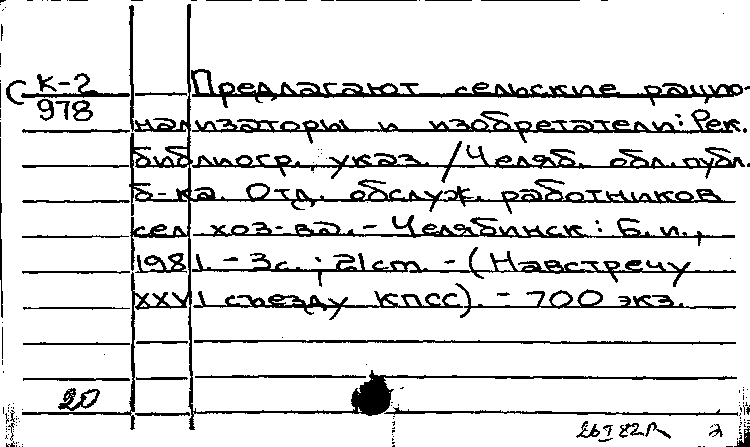 С К-2
978
Предлагают сельские рацио-
нализаторы и изобретатели: Рек.
библиогр. указ. / Челяб. обл. публ.
б-ка. Отд. обслуж. работников
сел хоз-ва. - Челябинск: Б. и.,
1981. - 3с.; 21ст. - (Навстречу
XXVI съезду КПСС). - 700 экз.
20